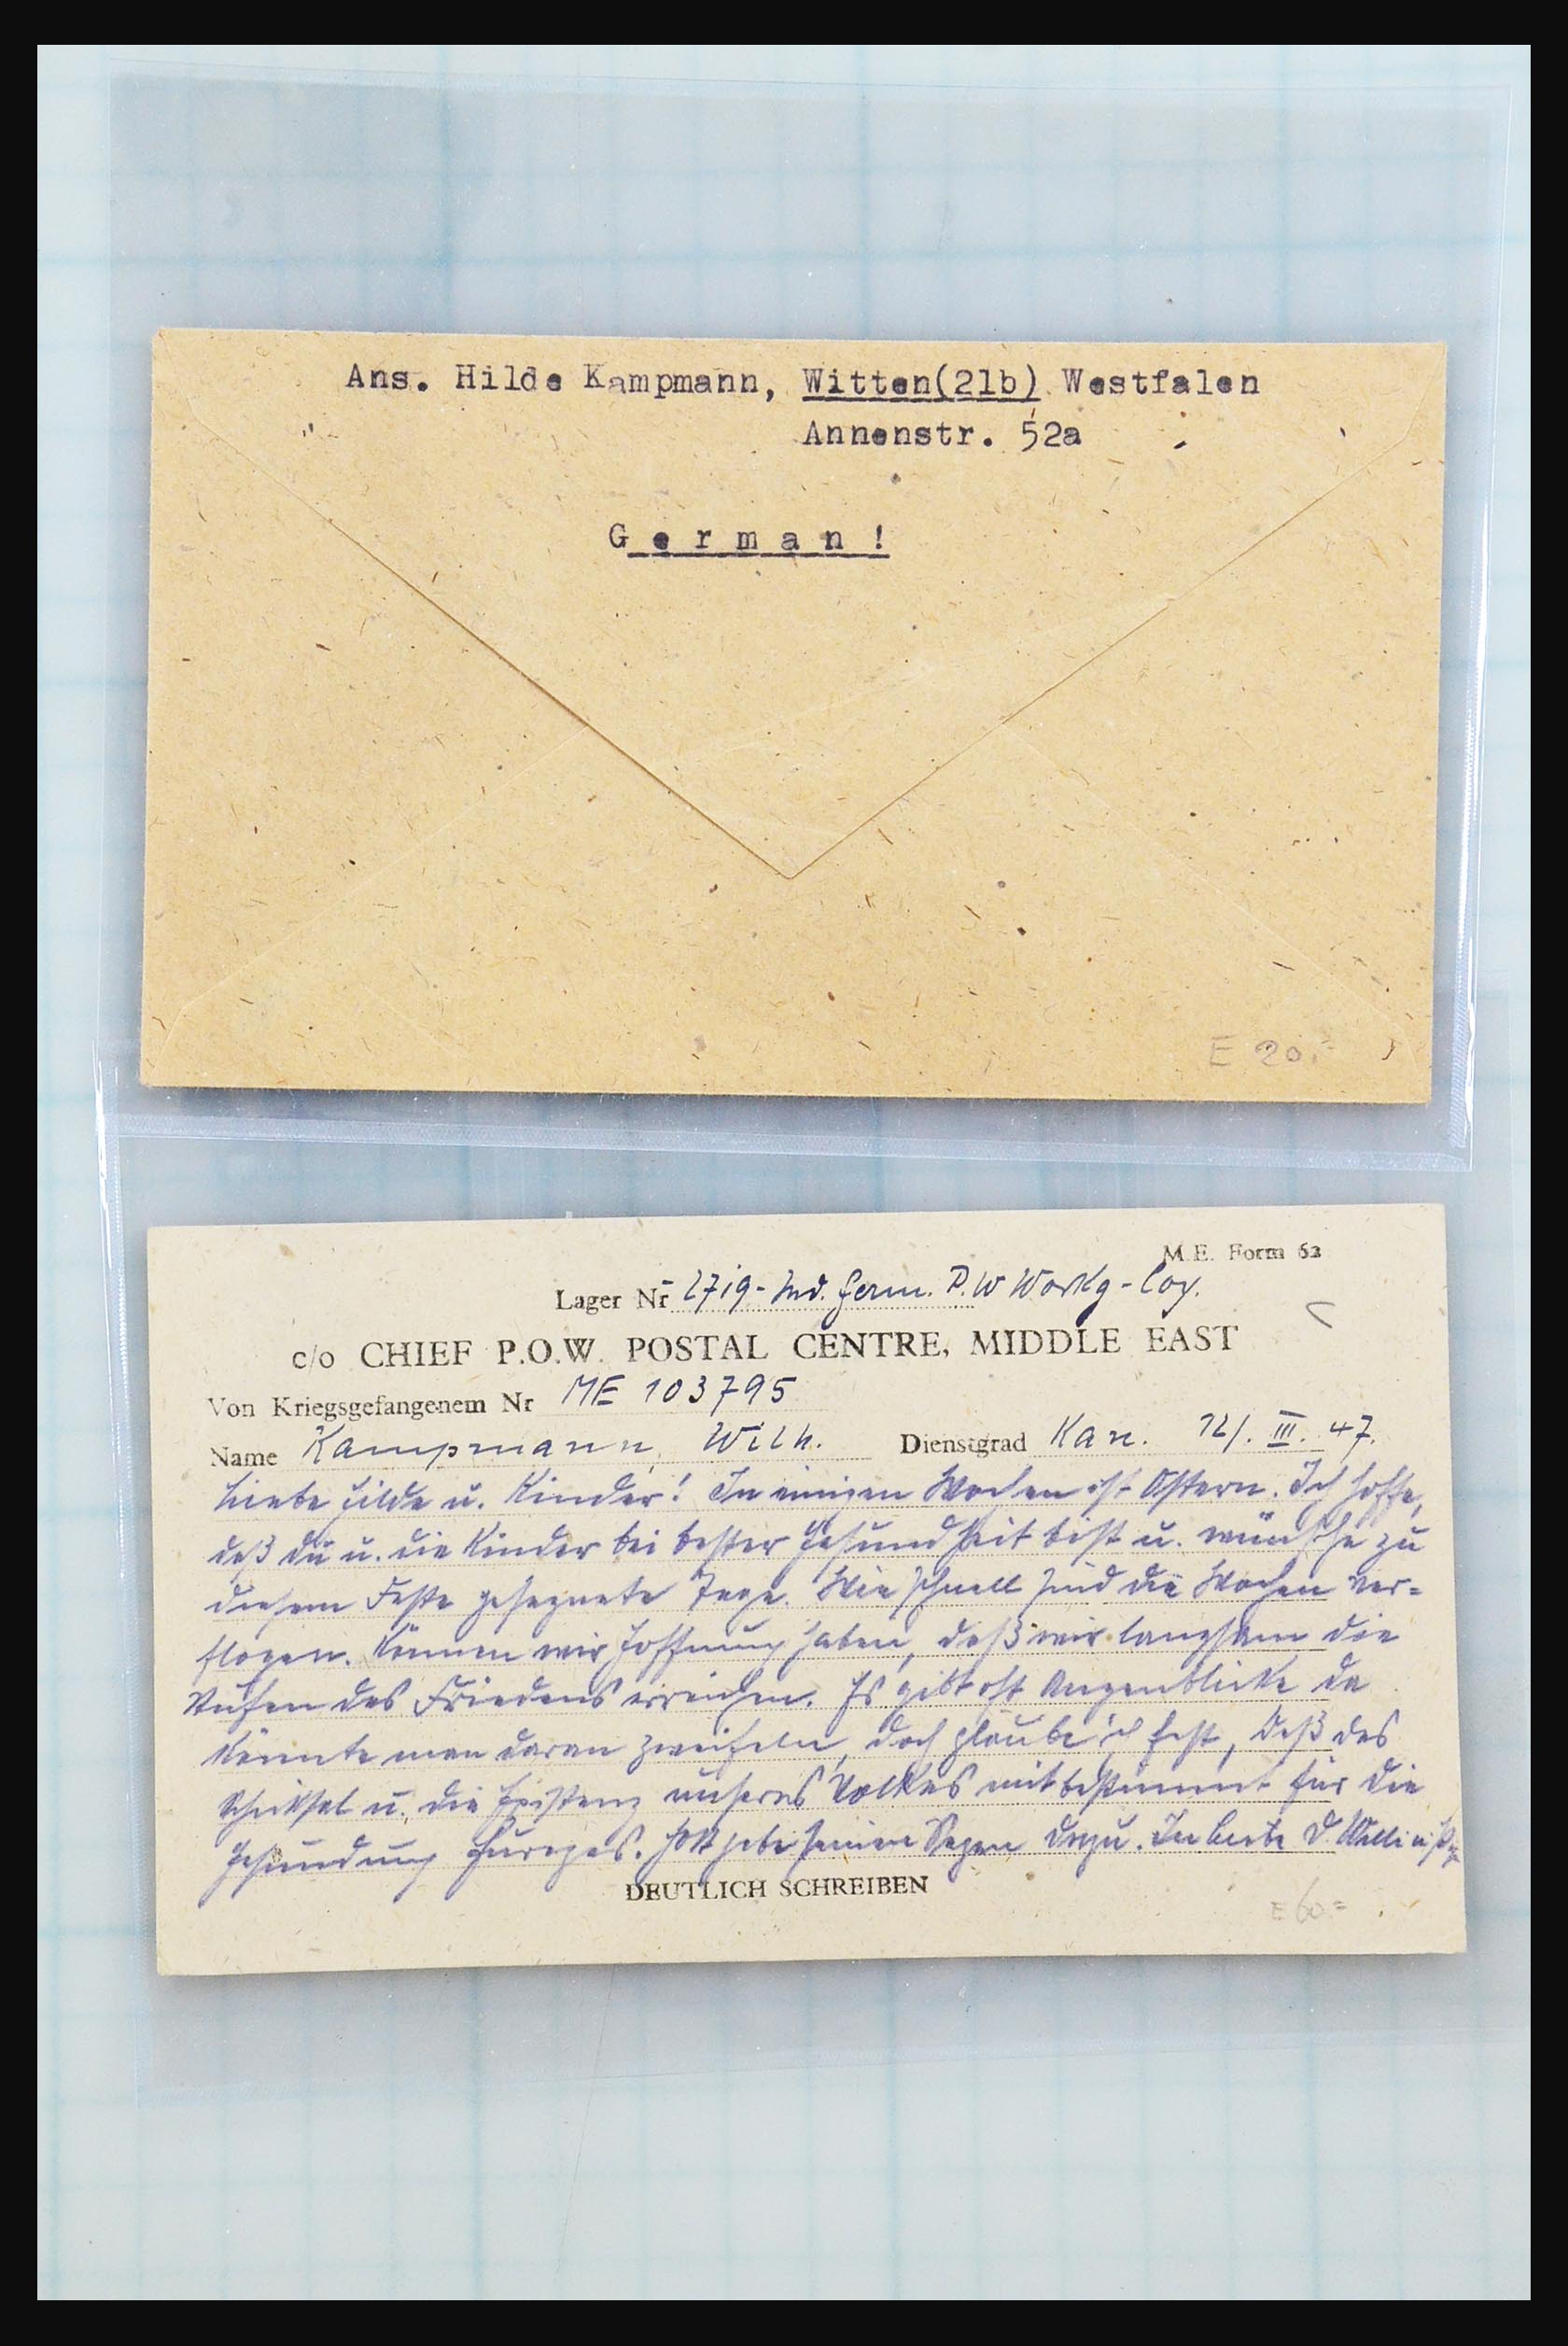 Ans. Hilde Kampmann, Witten(21b) Westfalen
Annenstr. 52a
German!
E 20.-
M.E. Form 62
Lager Nr 2719- Ind. Germ. P.W Workg-Coy.
c/o CHIEF P.O.W. POSTAL CENTRE, MIDDLE EAST
Von Kriegsgefangenem Nr ME 103795
Name Kampmann, Wilh. Dienstgrad Kan. 12/. III. 47.
Liebe Hilde u. Kinder! In einigen Wochen ist Ostern. Ich hoffe,
daß du u. die Kinder bei bester Gesundheit bist u. wünsche zu
diesem Feste gesegnete Tage. Wie schnell sind die Wochen ver=
flogen. Können wir Hoffnung haben, daß wir langsam die
Stufen des Friedens erreichen. Es gibt oft Augenblicke da
könnte man daran zweifeln, doch glaube ich fest, daß das
Schicksal u. die Existenz unseres Volkes mitbestimmt für die
Gesundung Europas. Gott gebe seinen Segen dazu. In Liebe D. Willi
DEUTLICH SCHREIBEN
E 60.=